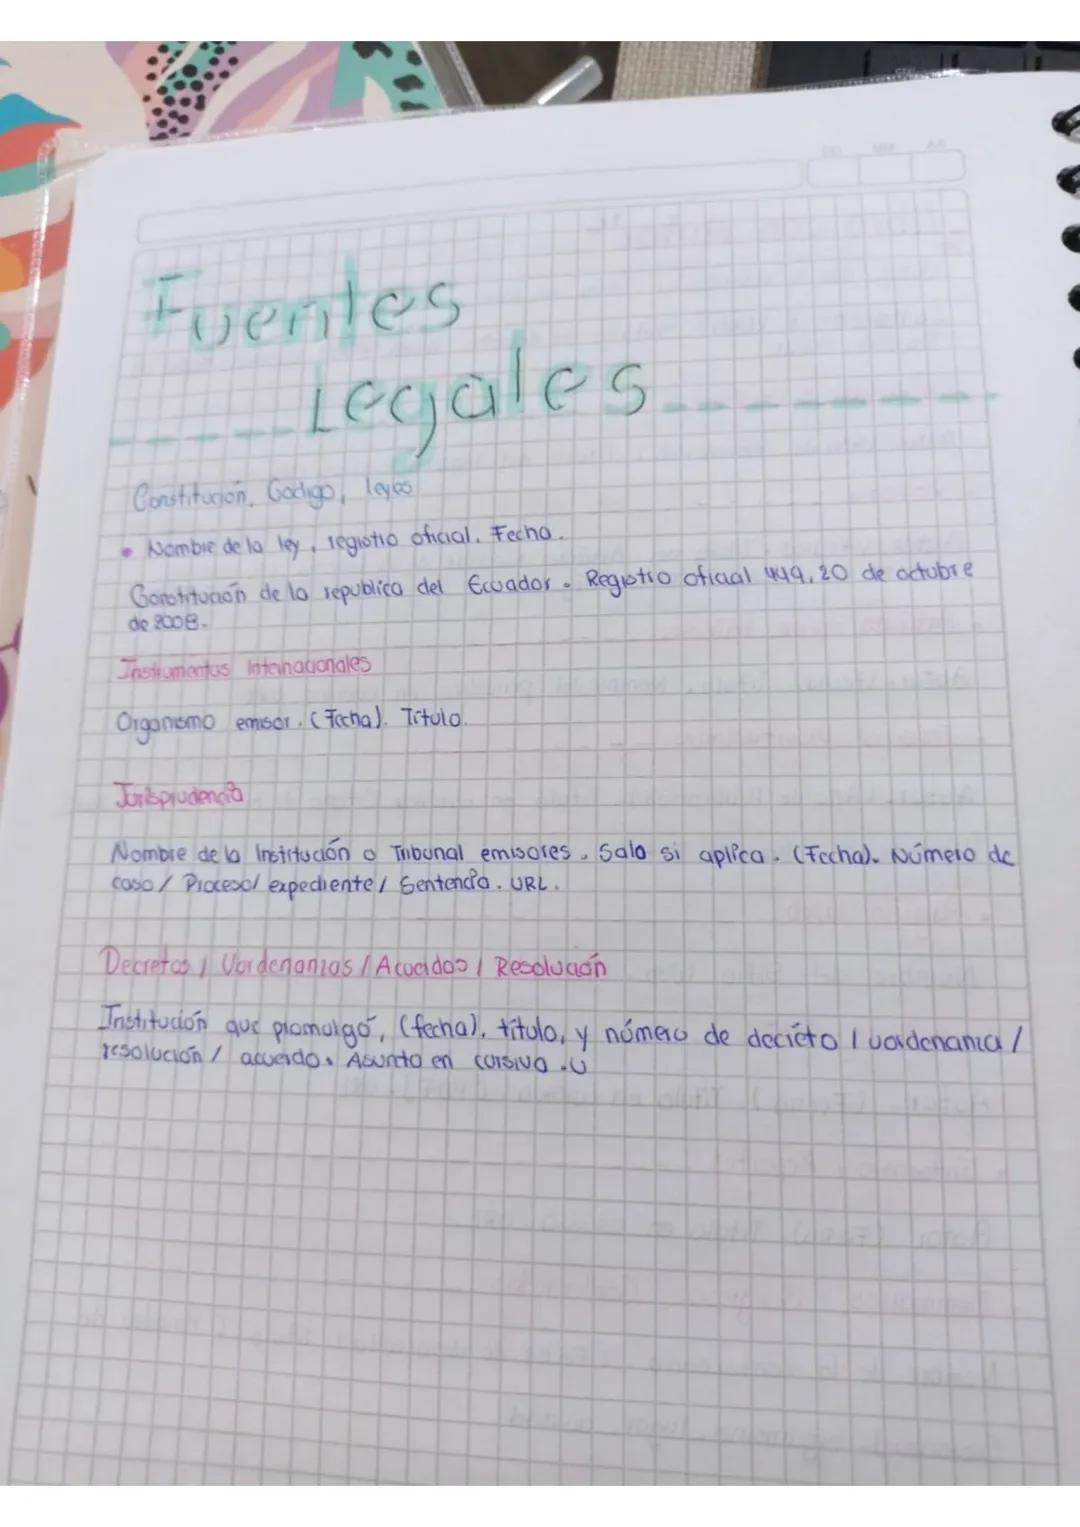 Fuentes
Legales
Constitución, Codigo, leyes
• Nombre de la ley, registro oficial. Fecha.
Constitución de la republica del Ecuador. Registro oficial 449, 20 de octubre
de 2008.
Instrumentos Internacionales
Organismo emisor. (Fecha). Título.
Jurisprudencia
Nombre de la Institución o Tribunal emisores. Sala si aplica. (Fecha). Número de
caso / Proceso / expediente / Sentencia. URL.
Decretos / Uordenanzas / Acuerdos / Resolución
Institución que promulgó, (fecha), título, y número de decréto / uordenanza /
resolución / acuerdo. Asunto en cursiva. U